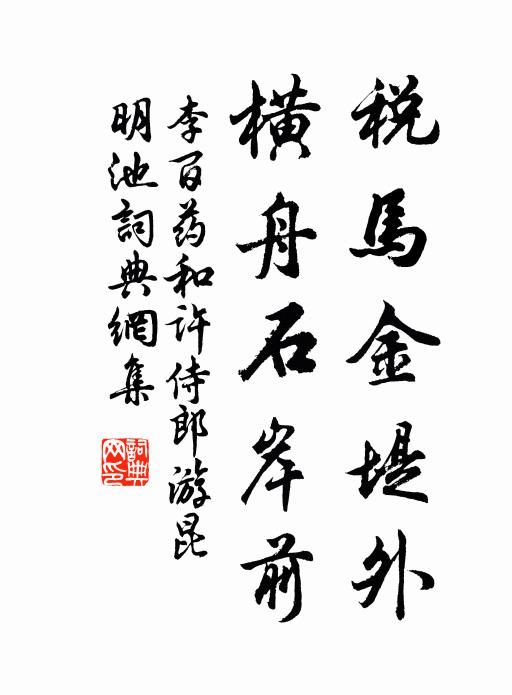 税馬金堤外
橫舟石岸前
李百葯和許侍郎游昆
明池詞典網集
詞典网印